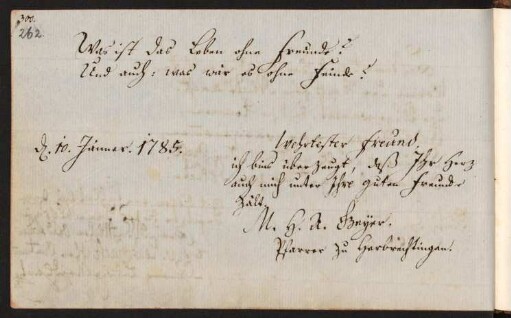 262.
Was ist das Leben ohne Freunde?
Und auch: was wär es ohne Feinde?
d. 10. Jänner. 1785.
Wehrtester Freund,
ich bins überzeugt, daß Ihr Herz
auch mich unter Ihre guten Freunde
zält.
M. H. A. Beyer.
Pfarrer zu Herbrechtingen.